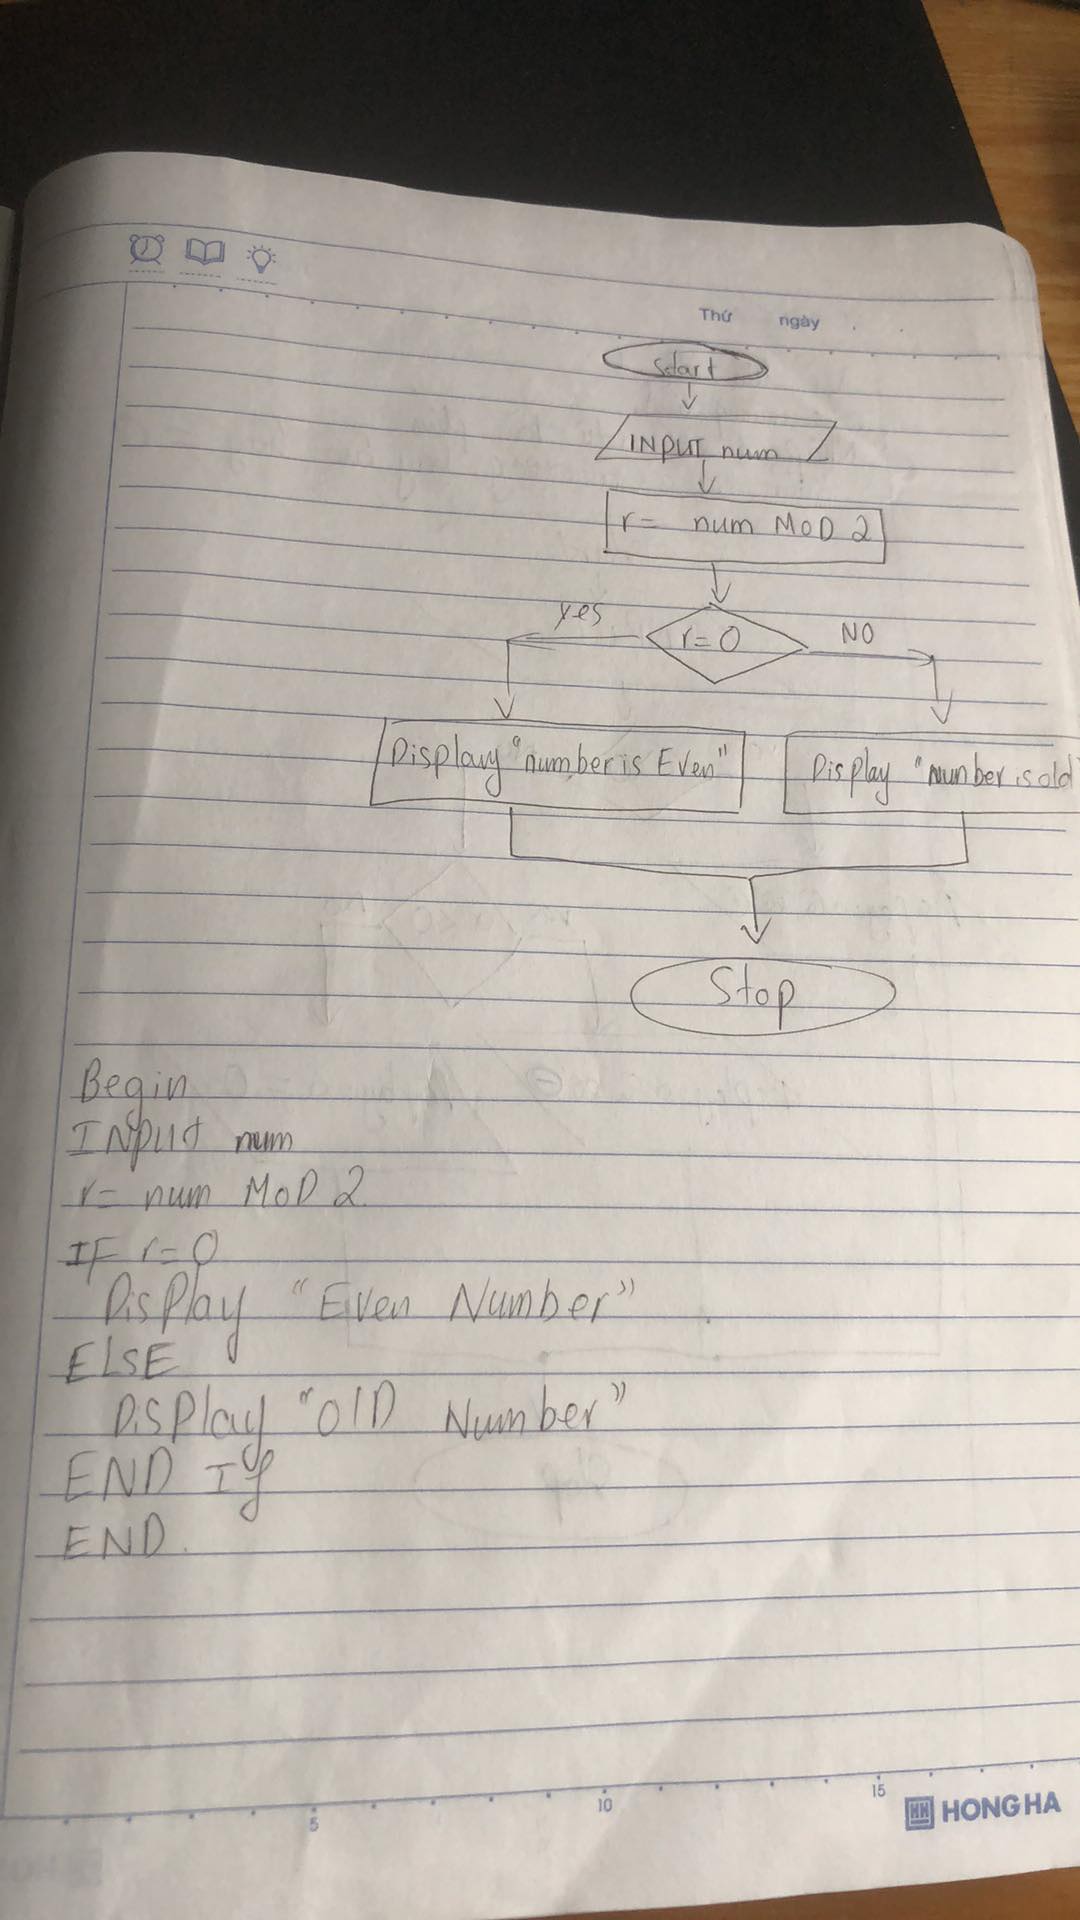 Thứ ngày
Start
INPUT num
r= num MOD 2
yes
r=0
NO
Display "number is Even"
Display "Number is old"
Stop
Begin
INPUT num
r= num MOD 2
IF r=0
Display "Even Number"
ELSE
Display "OlD Number"
END If
END.
5 10 15
HH HONG HA